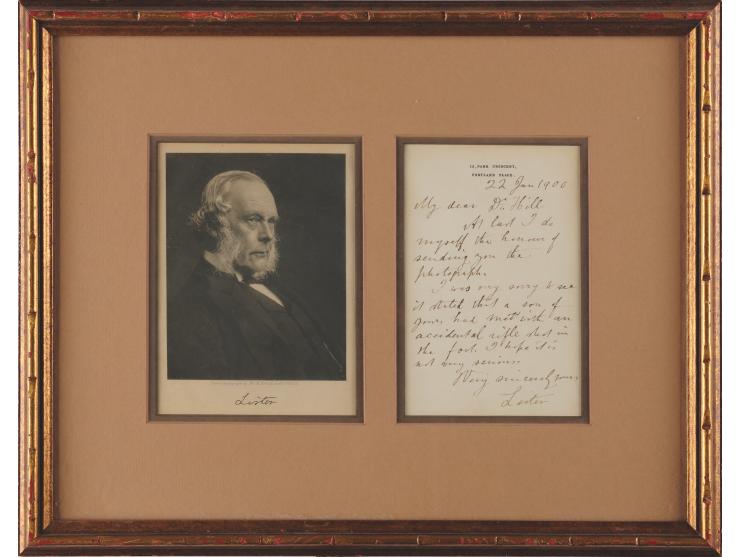 Lister
12, PARK CRESCENT,
PORTLAND PLACE.
22 Jan 1900
My dear Dr. Hill
At last I do
myself the honour of
sending you the
photograph.
I was very sorry to see
it stated that a son of
yours had met with an
accidental rifle shot in
the foot. I hope it is
not very serious.
Very sincerely yours
Lister